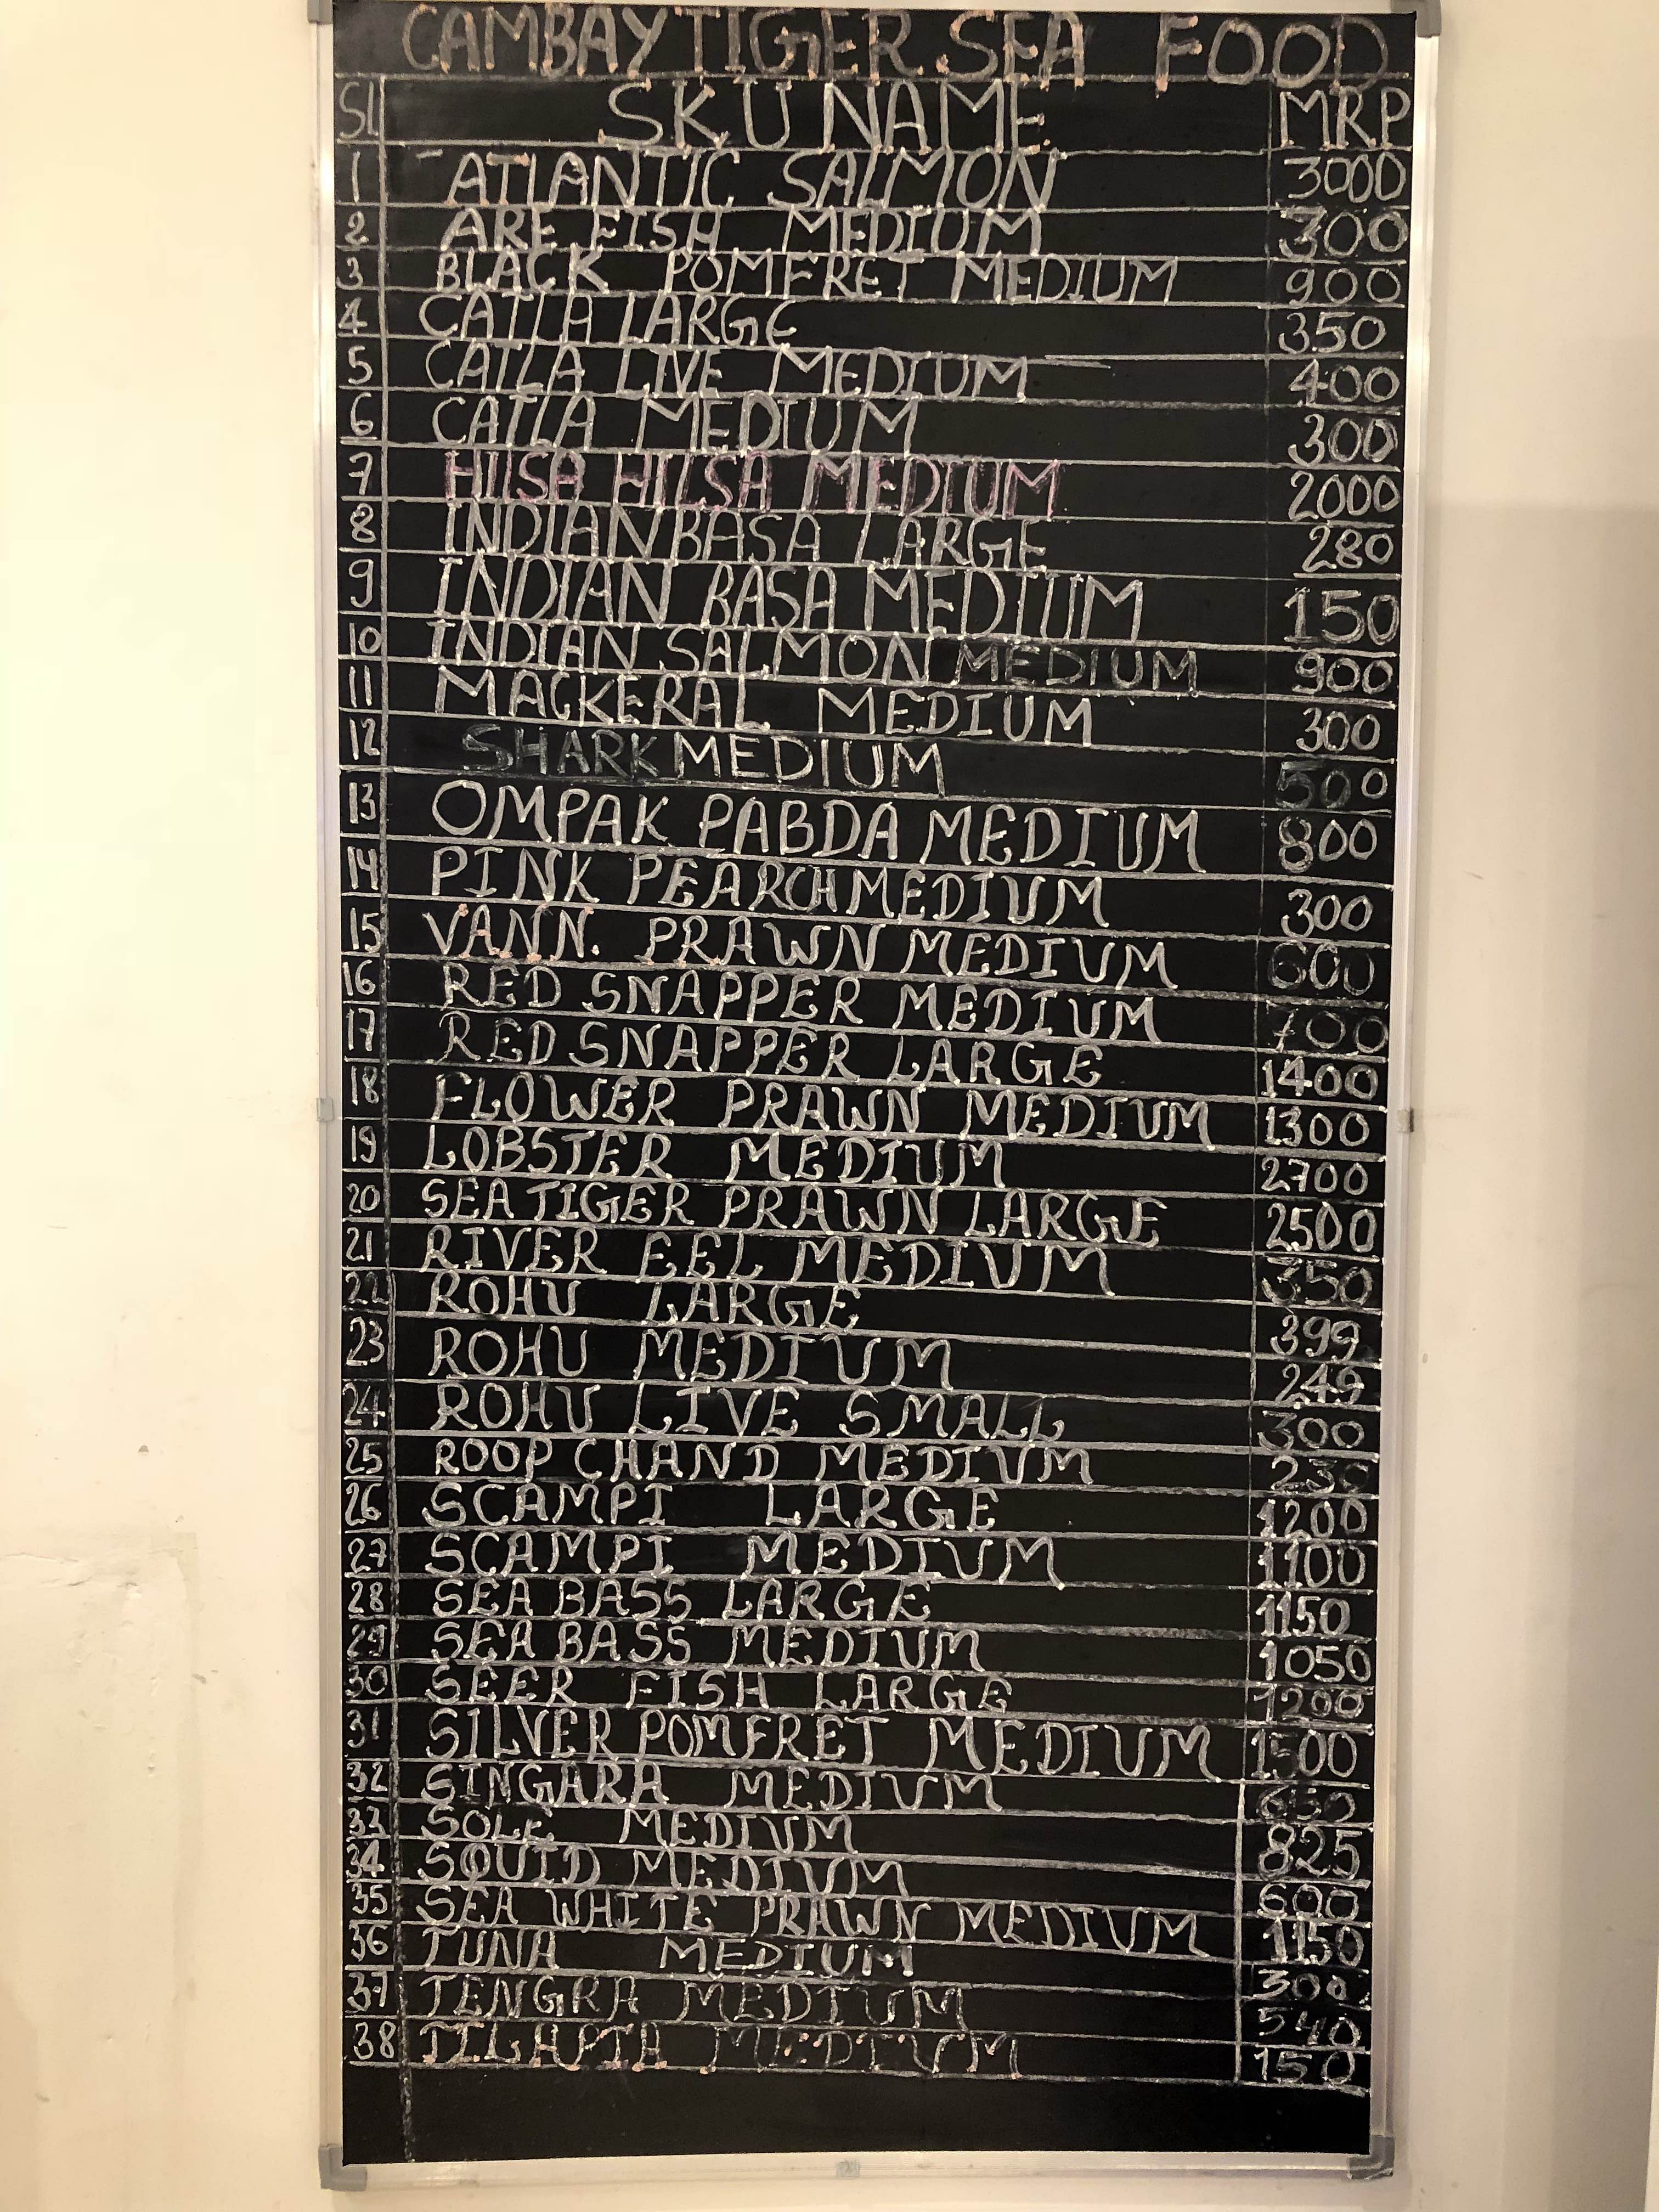 CAMBAY TIGER SEA FOOD
Sl SKU NAME MRP
1 ATLANTIC SALMON 3000
2 ARE FISH MEDIUM 300
3 BLACK POMFRET MEDIUM 900
4 CATLA LARGE 350
5 CATLA LIVE MEDIUM 400
6 CATLA MEDIUM 300
7 HILSA HILSA MEDIUM 2000
8 INDIAN BASA LARGE 280
9 INDIAN BASA MEDIUM 150
10 INDIAN SALMON MEDIUM 900
11 MACKERAL MEDIUM 300
12 SHARK MEDIUM 500
13 OMPAK PABDA MEDIUM 800
14 PINK PEARCH MEDIUM 300
15 VANN. PRAWN MEDIUM 600
16 RED SNAPPER MEDIUM 700
17 RED SNAPPER LARGE 1400
18 FLOWER PRAWN MEDIUM 1300
19 LOBSTER MEDIUM 2700
20 SEA TIGER PRAWN LARGE 2500
21 RIVER EEL MEDIUM 350
22 ROHU LARGE 399
23 ROHU MEDIUM 249
24 ROHU LIVE SMALL 300
25 ROOP CHAND MEDIUM 230
26 SCAMPI LARGE 1200
27 SCAMPI MEDIUM 1100
28 SEA BASS LARGE 1150
29 SEA BASS MEDIUM 1050
30 SEER FISH LARGE 1200
31 SILVER POMFRET MEDIUM 1500
32 SINGARA MEDIUM
33 SOLE MEDIUM 825
34 SQUID MEDIUM 600
35 SEA WHITE PRAWN MEDIUM 1150
36 TUNA MEDIUM 300
37 TENGRA MEDIUM 540
38 TILAPIA MEDIUM 150